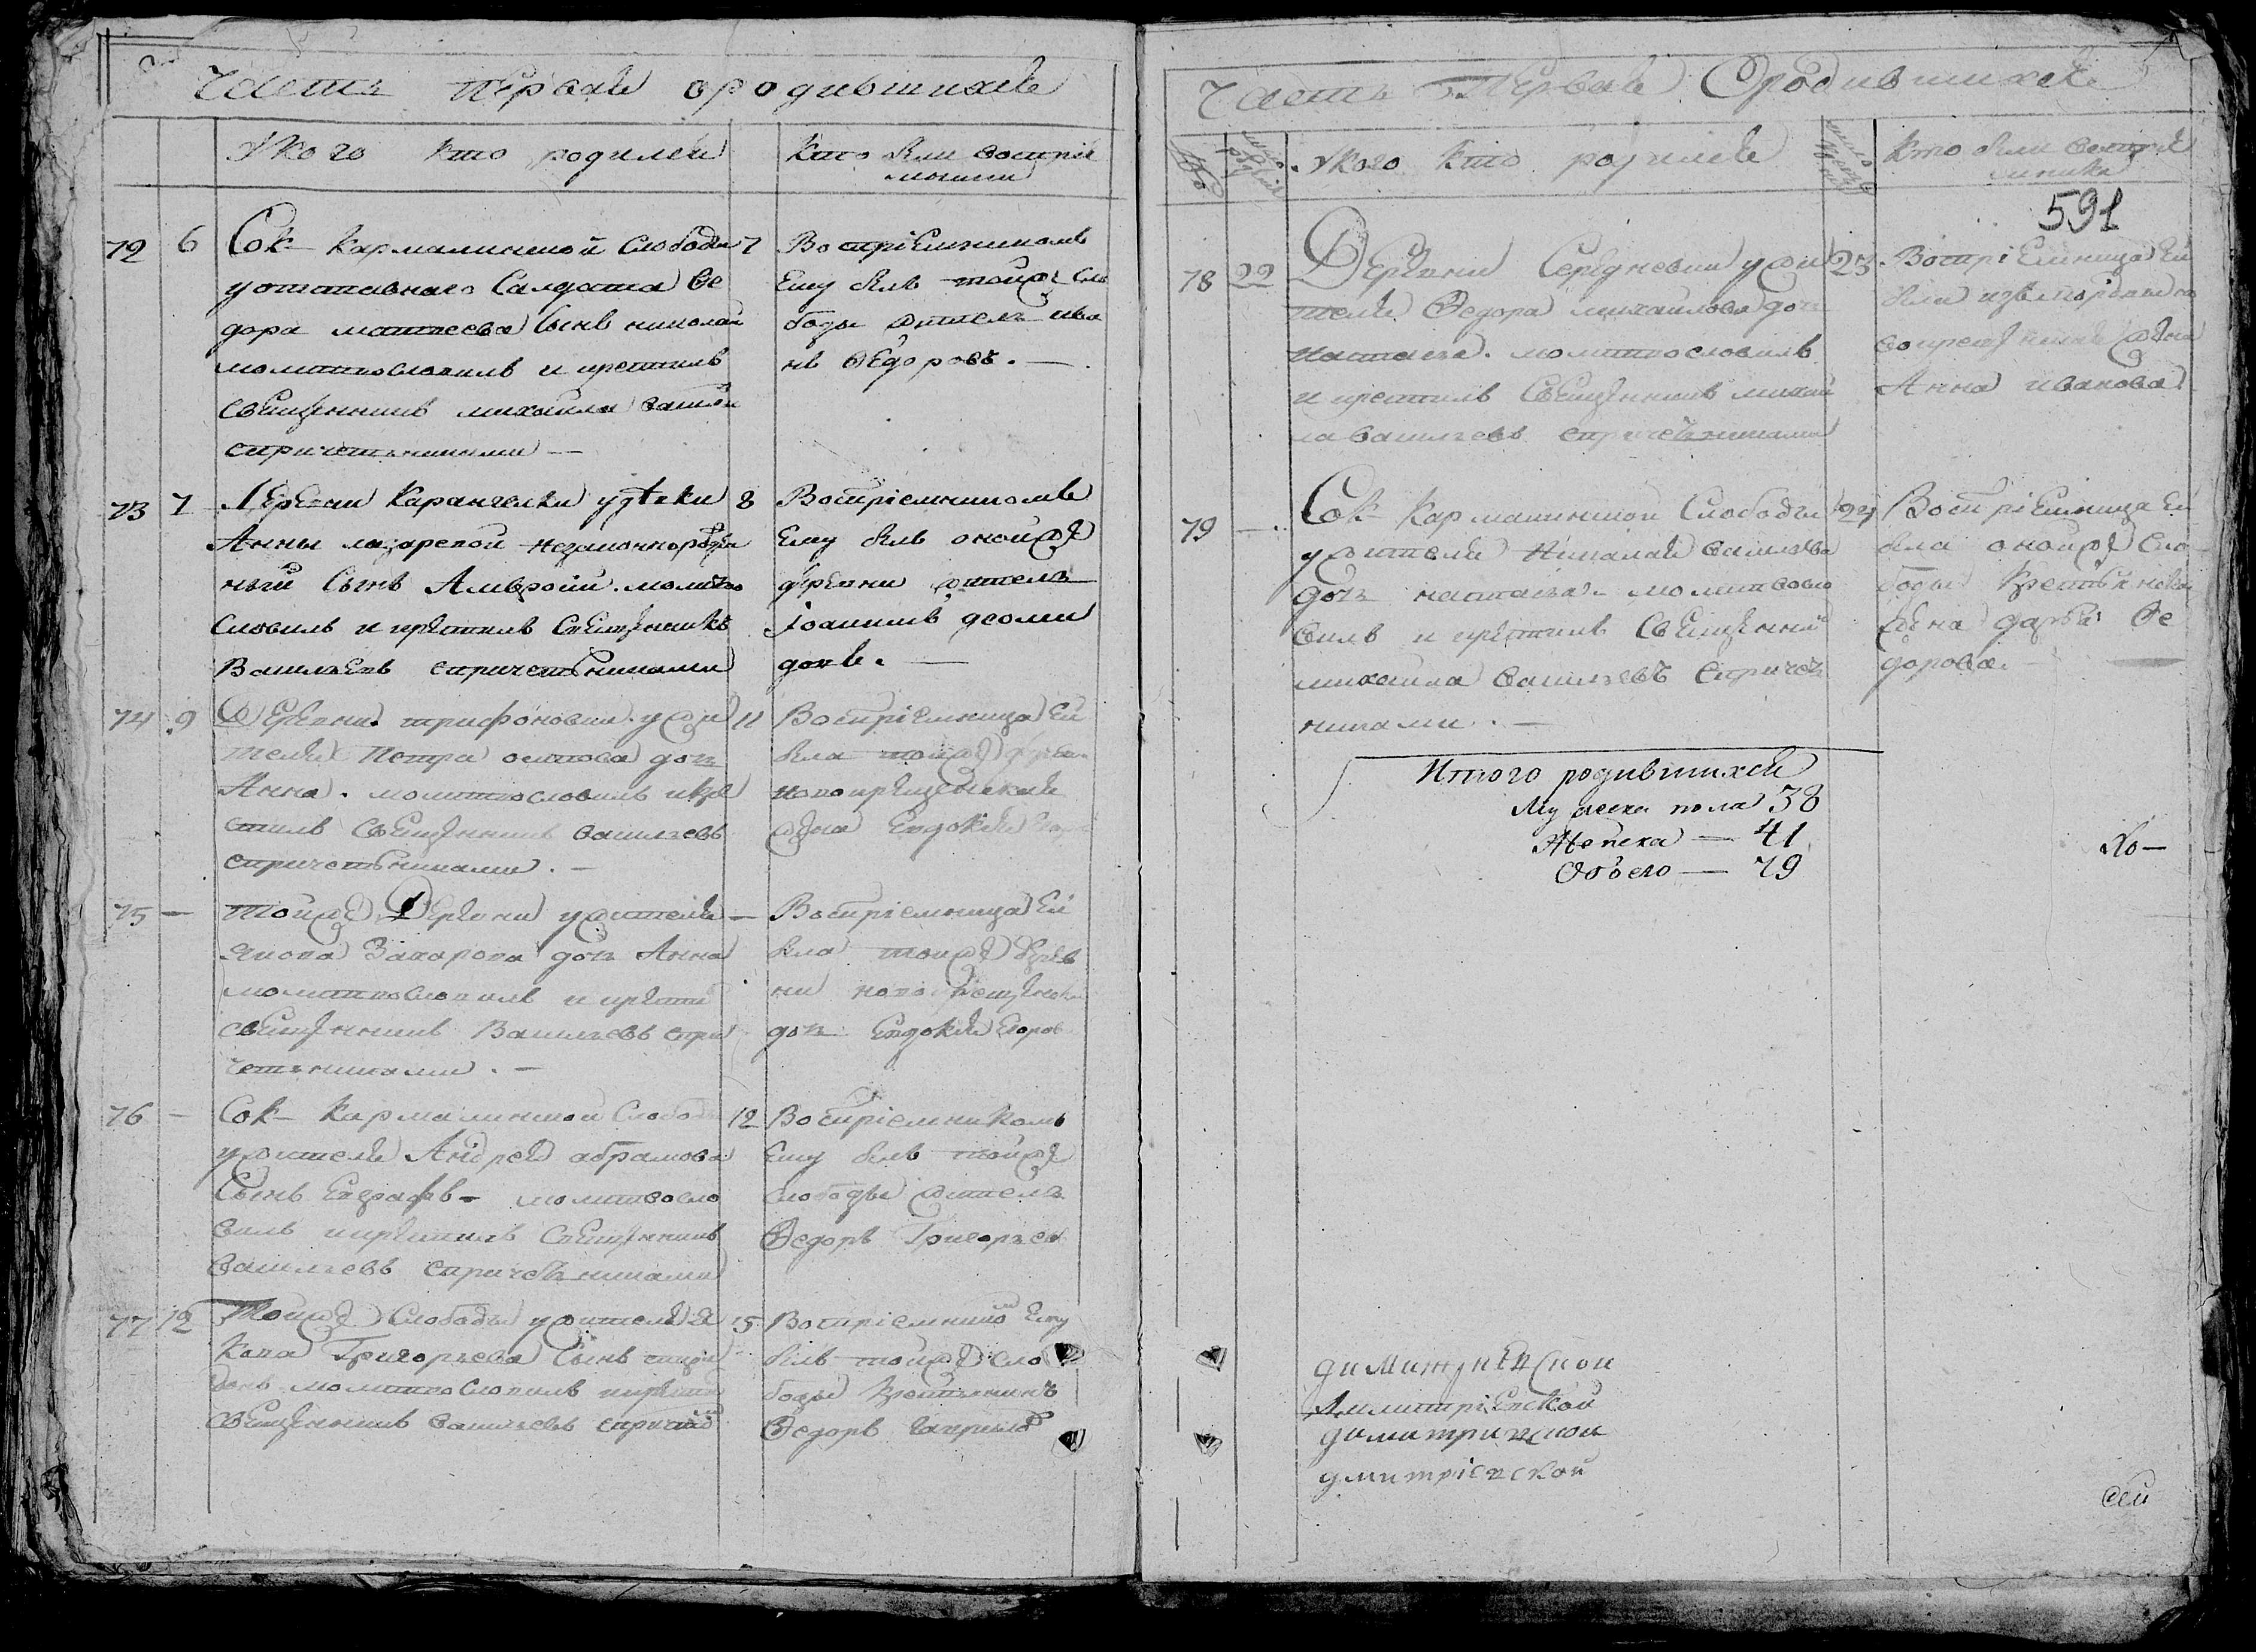 Часть первая о родившихся
У кого кто родился
Кто были воспріе
мники
72 6 Сок- Кармалинской Слободы 7
у отставнаго Салдата Фе
дора матвеева Сынъ николай
молитвословилъ и крестилъ
Священникъ михаила
спричетниками —
Воспріемникомъ
Ему былъ тойже Сло
боды житель ива
нъ Федоровъ. —
73 7 Деревни Карангелки удевки 8
Анны лазаревой незаконнорожде
ный Сынъ Амвросій. молитво
словилъ и крестилъ Священникъ
Васильевъ спричетниками
Воспріемникомъ
Ему былъ онойже
деревни житель
74 9 Деревни трифоновки у жи 11
теля Петра осипова дочь
Анна. молитвословилъ и кре
стилъ Священникъ васильевъ
спричетниками. —
Воспріемница Ей
была тойже
новокрещенская
жена Евдокія
75 — тойже Деревни у жителя —
якова Захарова дочь Анна
молитвословилъ и крести
священникъ Васильевъ спри
четниками. —
Воспріемница Ей
была тойже дерев
ни новокрещенска
дочь Евдокія Егоров
76 — Сок- Кармалинской Слободы 12
у жителя Андрея абрамова
Сынъ Евграфъ - молитвосло
вилъ и крестилъ Священникъ
васильевъ спричетниками
Воспріемникомъ
Ему былъ тойже
слободы житель
Федоръ Григорьев
77 12 Тойже Слободы у жителя Я 15
кова Григорьева Сынъ
молитвословилъ и крести
Священникъ васильевъ
Воспріемником Ему
былъ тойже сло
боды крестьянинъ
Федоръ гаврилов
Часть Первая О родившихся
У кого кто родился
Кто были воспрie
мники
591
78 22 Деревни Середневки у жи 23
теля Федора михаилова дочь
наталья. молитвословилъ
и крестилъ Священникъ михаи
ла васильевъ спричетниками
Воспріемница Ей
была
жена
Анна иванова
79 — Сок- Кармалинской Слободы 24
у жителя Николая васильева
дочь наталья. молитвосло
вилъ и крестилъ Священни
михаила васильевъ спричет
никами. —
Воспріемница Ей
была онойже Сло
боды Крестьянска
жена дарья Фе
дорова. —
Итого родившихся
Мужеска пола 38
Женска — 41
Обоего — 79
Ко—
димитриевской
Димитріевской
димитриевской
дмитріевской
сей